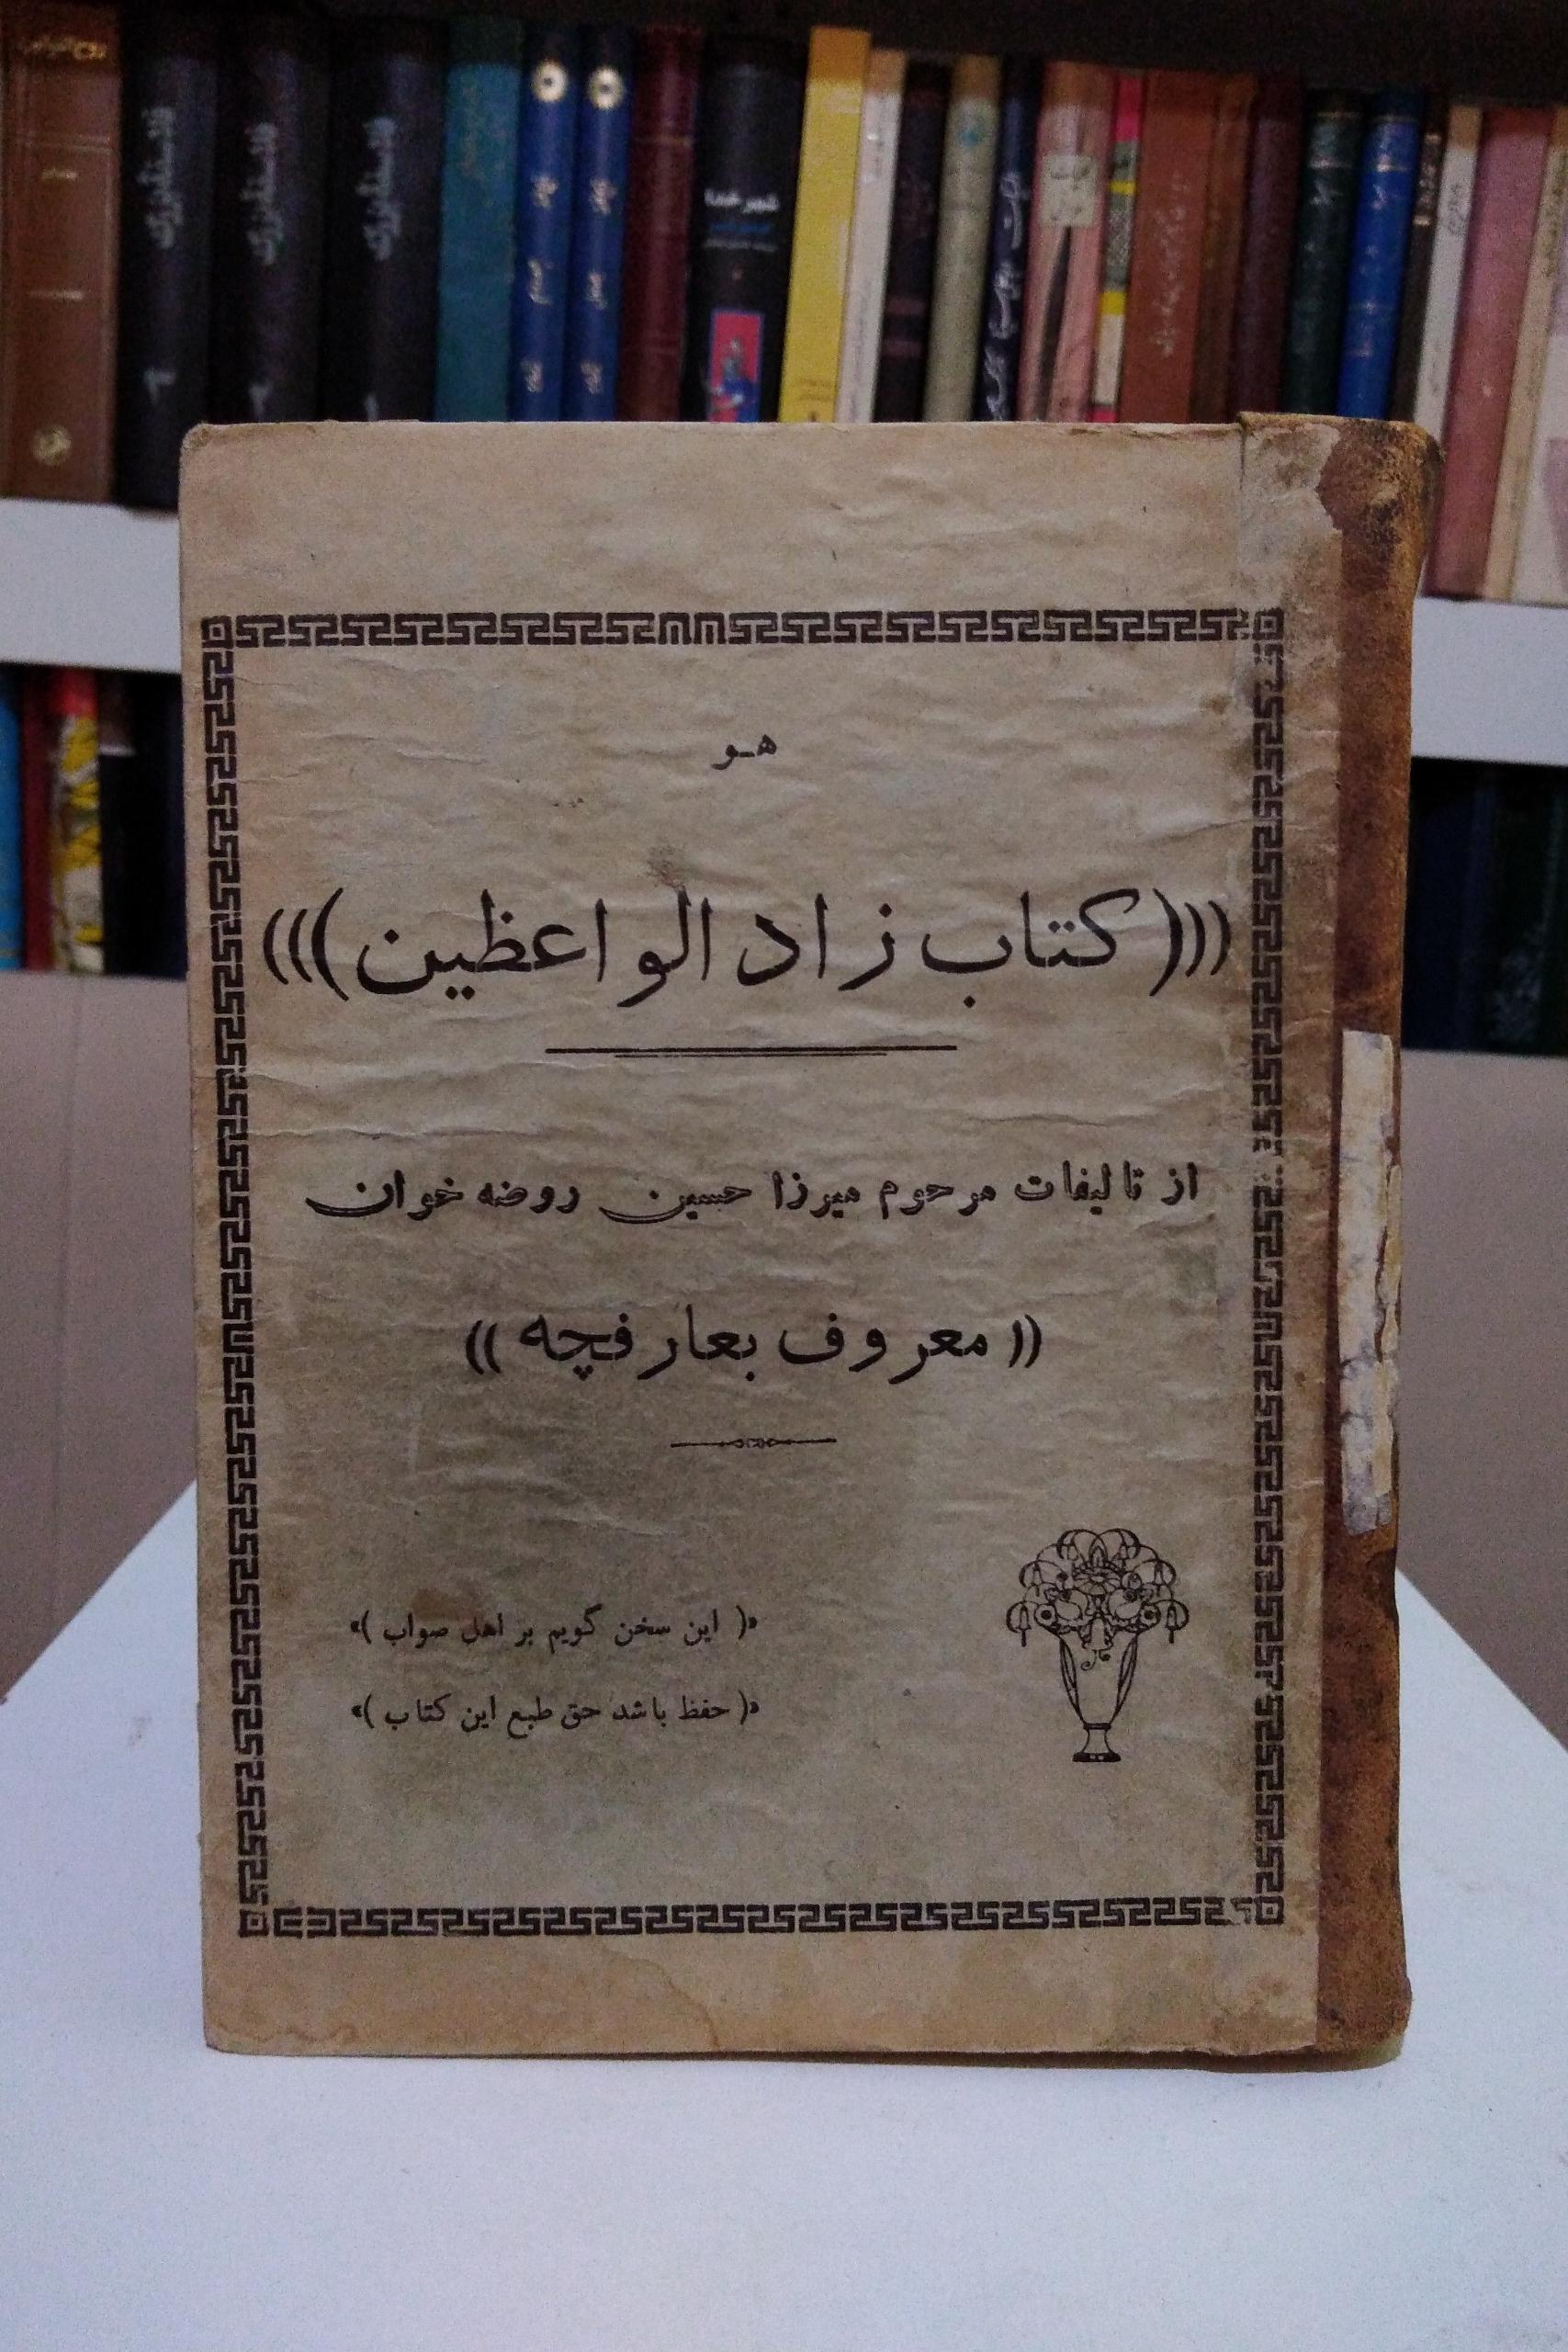 هو
(((کتاب زاد الواعظین)))
از تالیفات مرحوم میرزا حسین روضه خوان
((معروف بعارفچه))
«( این سخن گویم بر اهل صواب )»
«( حفظ باشد حق طبع این کتاب )»